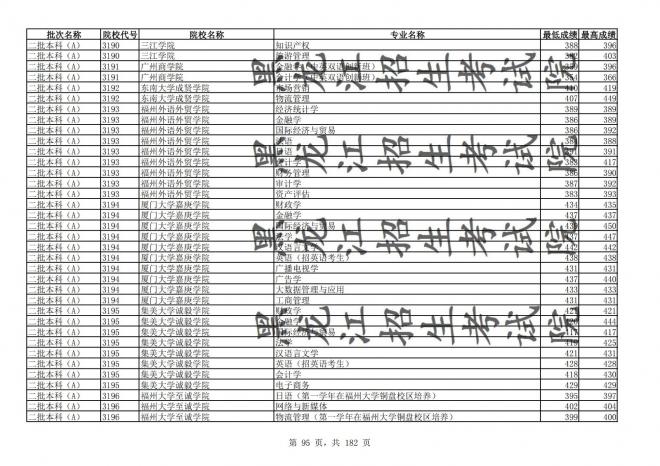 批次名称 院校代号 院校名称 专业名称 最低成绩 最高成绩
二批本科（A） 3190 三江学院 知识产权 388 396
二批本科（A） 3190 三江学院 旅游管理 403
二批本科（A） 3191 广州商学院 金融学（中英双语创新班） 396
二批本科（A） 3191 广州商学院 会计学（中英双语创新班） 366
二批本科（A） 3192 东南大学成贤学院 市场营销 410 419
二批本科（A） 3192 东南大学成贤学院 物流管理 407 449
二批本科（A） 3193 福州外语外贸学院 经济统计学 389 389
二批本科（A） 3193 福州外语外贸学院 金融学 386 389
二批本科（A） 3193 福州外语外贸学院 国际经济与贸易 386 392
二批本科（A） 3193 福州外语外贸学院 388
二批本科（A） 3193 福州外语外贸学院 391
二批本科（A） 3193 福州外语外贸学院 417
二批本科（A） 3193 福州外语外贸学院 财务管理 390
二批本科（A） 3193 福州外语外贸学院 审计学 387 392
二批本科（A） 3193 福州外语外贸学院 资产评估 383 393
二批本科（A） 3194 厦门大学嘉庚学院 财政学 434 435
二批本科（A） 3194 厦门大学嘉庚学院 金融学 437 437
二批本科（A） 3194 厦门大学嘉庚学院 国际经济与贸易 450
二批本科（A） 3194 厦门大学嘉庚学院 447
二批本科（A） 3194 厦门大学嘉庚学院 汉语言文学 442 442
二批本科（A） 3194 厦门大学嘉庚学院 英语（招英语考生） 438 438
二批本科（A） 3194 厦门大学嘉庚学院 广播电视学 431 431
二批本科（A） 3194 厦门大学嘉庚学院 广告学 437 440
二批本科（A） 3194 厦门大学嘉庚学院 大数据管理与应用 433 433
二批本科（A） 3194 厦门大学嘉庚学院 工商管理 431 431
二批本科（A） 3195 集美大学诚毅学院 财政学 421
二批本科（A） 3195 集美大学诚毅学院 金融学 444
二批本科（A） 3195 集美大学诚毅学院 国际经济与贸易 417 417
二批本科（A） 3195 集美大学诚毅学院 法学 419 425
二批本科（A） 3195 集美大学诚毅学院 汉语言文学 421 431
二批本科（A） 3195 集美大学诚毅学院 英语（招英语考生） 421 428
二批本科（A） 3195 集美大学诚毅学院 会计学 418 430
二批本科（A） 3195 集美大学诚毅学院 电子商务 429 429
二批本科（A） 3196 福州大学至诚学院 日语（第一学年在福州大学铜盘校区培养） 395 397
二批本科（A） 3196 福州大学至诚学院 网络与新媒体 402 404
二批本科（A） 3196 福州大学至诚学院 物流管理（第一学年在福州大学铜盘校区培养） 399 400
黑龙江招生考试院
黑龙江招生考试院
黑龙江招生考试院
黑龙江招生考试院
第 95 页，共 182 页